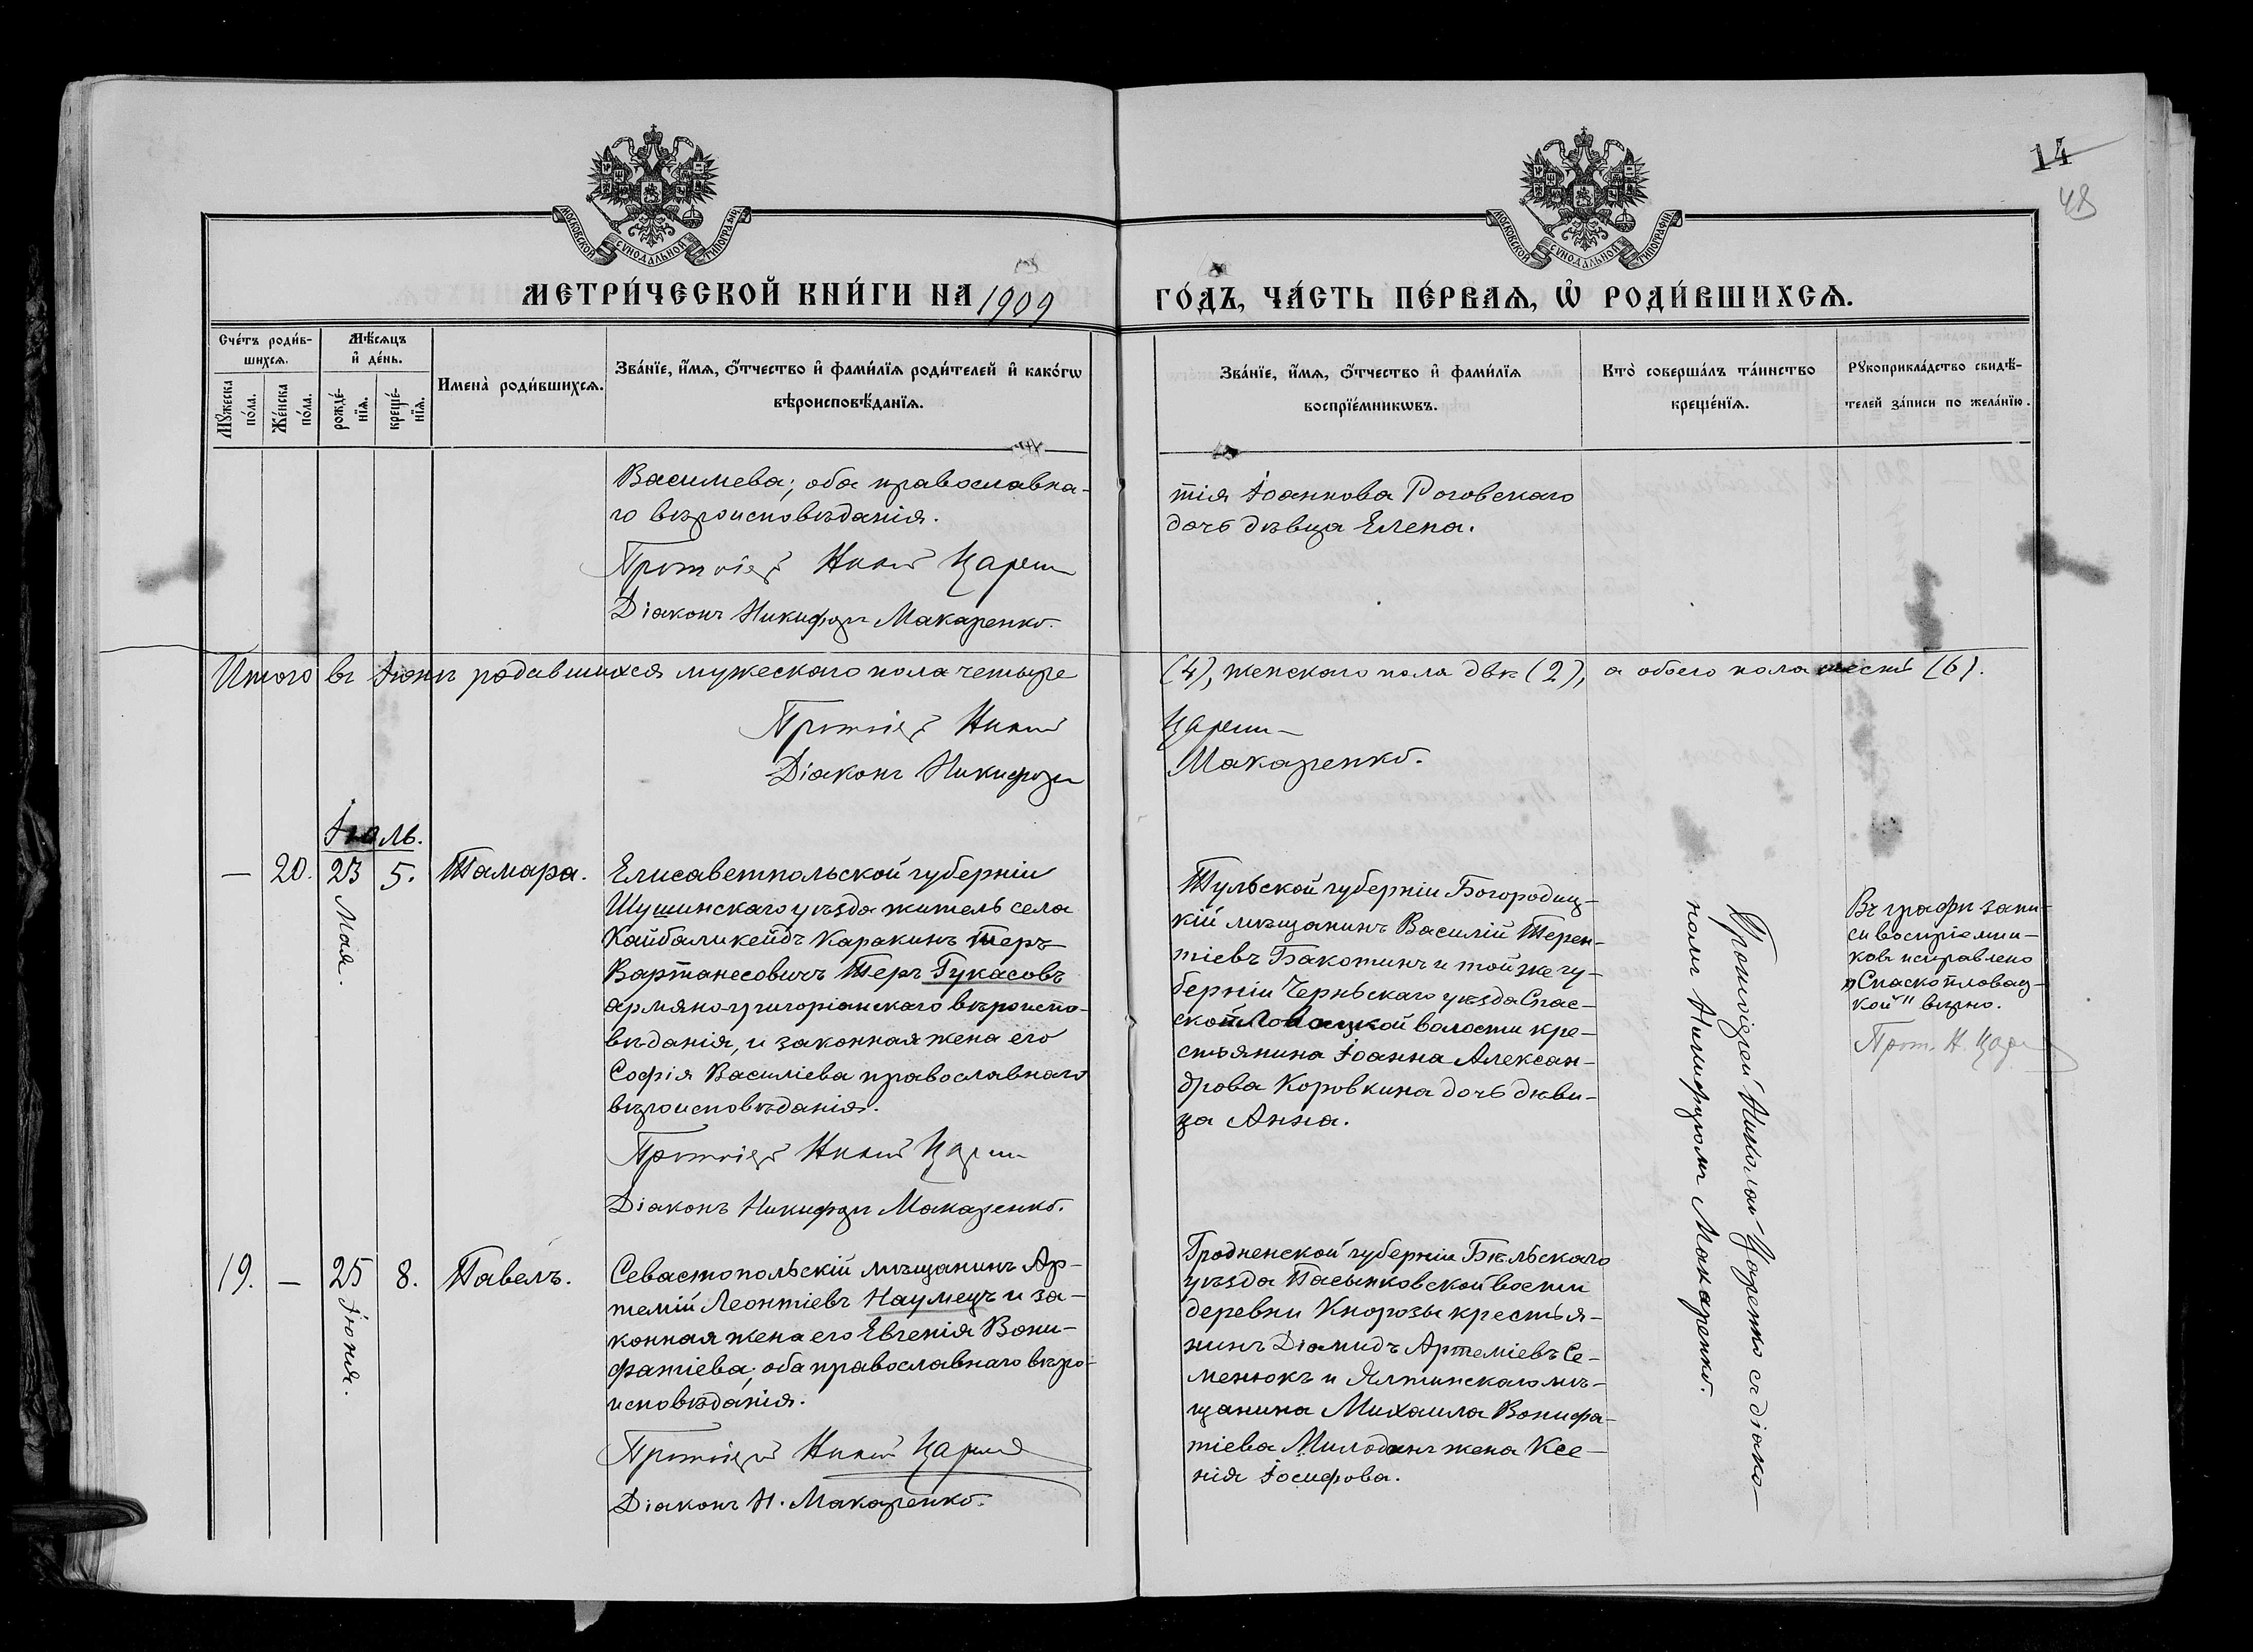 14
48
МОСКОВСКОЙ СѴНОДАЛЬНОЙ ТИПОГРАФІИ
МОСКОВСКОЙ СѴНОДАЛЬНОЙ ТИПОГРАФІИ
МЕТРИ́ЧЕСКОЙ КНИ́ГИ НА 1909
ГО́ДЪ, ЧА́СТЬ ПЕ́РВАѦ, Ѡ҆ РОДИ́ВШИХСѦ.
Сче́тъ роди́в-
шихсѧ.
Мꙋ́жеска по́ла.
Же́нска по́ла.
Мѣ́сѧцъ
и҆ де́нь.
рожде́-
нїѧ.
креще́-
нїѧ.
Имена̀ роди́вшихсѧ.
Зва́нїе, и҆́мѧ, ѻ҆́тчество и҆ фами́лїѧ роди́телей и҆ како́гѡ
вѣроисповѣ́данїѧ.
Зва́нїе, и҆́мѧ, ѻ҆́тчество и҆ фами́лїѧ
воспрїе́мникѡвъ.
Кто̀ соверша́лъ та́инство
креще́нїѧ.
Рꙋкоприкла́дство свидѣ́-
телей за́писи по жела́нїю.
Васильева; оба православна-
го вѣроисповѣданія.
Діаконъ Никифоръ Макаренко.
тія Іоаннова Роговскаго
дочь дѣвица Елена.
Итого въ Іюнѣ родившихся мужескаго пола четыре
(4), женскаго пола двѣ (2), а обоего пола шесть (6).
Діаконъ Никифоръ
Макаренко.
Іюль.
— 20. 23 Мая. 5. Тамара.
Елисаветпольской губерніи
Шушинскаго уѣзда житель села
Кайбаликейдъ Каракинъ Теръ-
Вартанесовичъ Теръ Гукасовъ
армяно-григоріанскаго вѣроиспо-
вѣданія, и законная жена его
Софія Василіева православнаго
вѣроисповѣданія.
Діаконъ Никифоръ Макаренко.
Тульской губерніи Богородиц-
кій мѣщанинъ Василій Терен-
тіевъ Бакотинъ и той же гу-
берніи Черньскаго уѣзда Спас-
скопловацкой волости кре-
стьянина Іоанна Алексан-
дрова Коровкина дочь дѣви-
ца Анна.
Протоіерей Николай Царенко съ діако-
номъ Никифоромъ Макаренко.
Въ графѣ запи-
си воспріемни-
ковъ исправлено
„Спаскопловац-
кой" вѣрно.
19. — 25 Іюня. 8. Павелъ.
Севастопольскій мѣщанинъ Ар-
темій Леонтіевъ Наумецъ и за-
конная жена его Евгенія Вони-
фатіева; оба православнаго вѣро-
исповѣданія.
Діаконъ Н. Макаренко.
Гродненской губерніи Бѣльскаго
уѣзда Пасынковской вости
деревни Кнорозы крестья-
нинъ Діамидъ Артеміевъ Се-
менюкъ и Ялтинскаго мѣ-
щанина Михаила Вонифа-
тіева Милодонъ жена Ксе-
нія Іосифова.